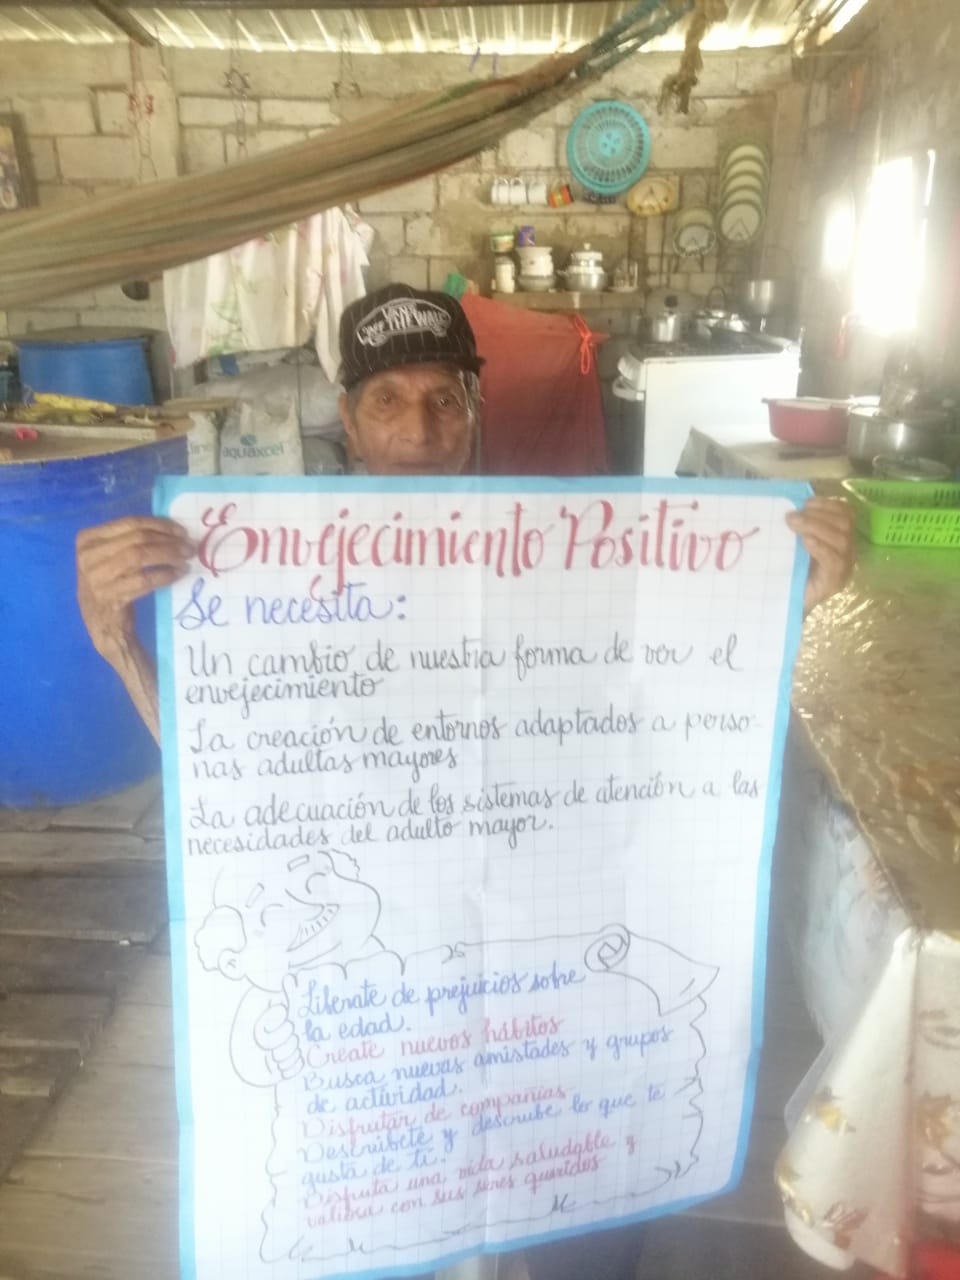 VANS
"OFF THE WALL"
aquaxcel
Envejecimiento Positivo
Se necesita:
Un cambio de nuestra forma de ver el
envejecimiento
La creación de entornos adaptados a perso-
nas adultas mayores
La adecuación de los sistemas de atención a las
necesidades del adulto mayor.
Liberate de prejuicios sobre
la edad.
Create nuevos hábitos
Busca nuevas amistades y grupos
de actividad.
Disfrutar de compañias
Descrubete y descrube lo que te
gusta de ti.
Disfruta una vida saludable y
con sus seres queridos